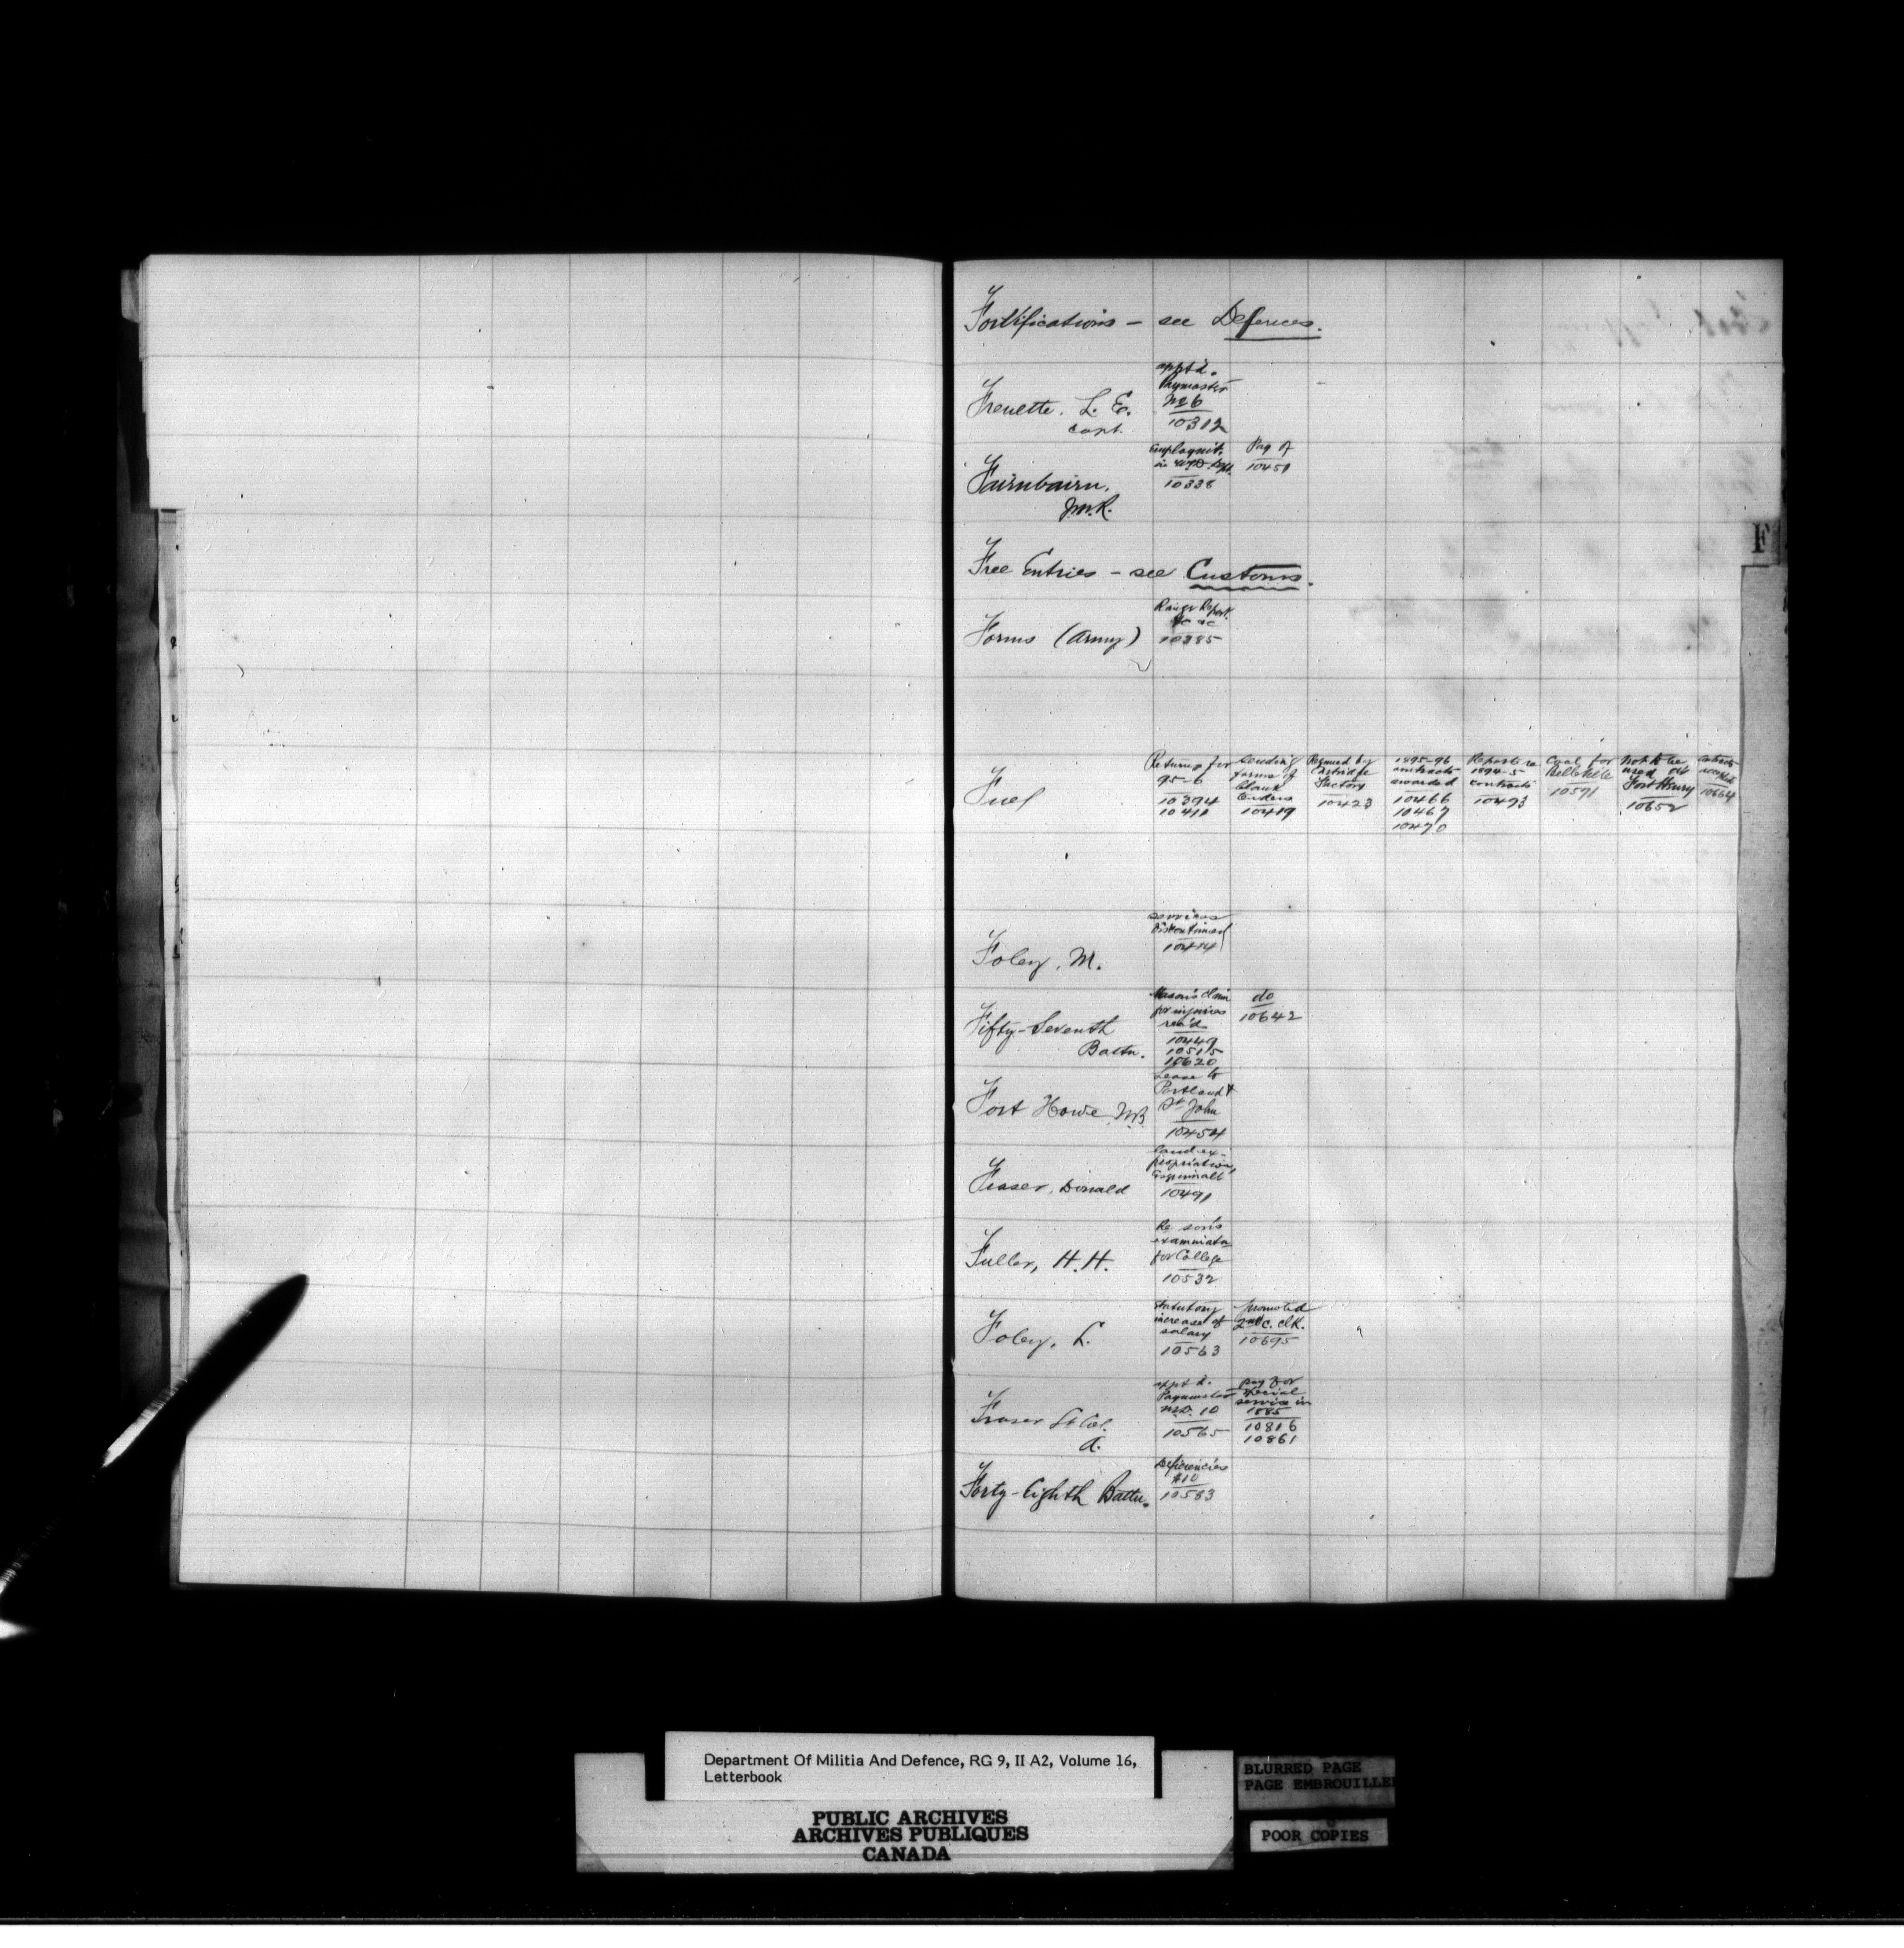 Fortifications — see Defences.
appt'd.
Paymaster
No 6
10312
Frenette, L. E.
Capt.
Employmt.
in
10338
Pay of
10451
Fairnbairn,
J.M.R.
F
Free Entries — see Customs.
Range Report
&c &c
10385
Forms (Army)
Fuel
Returns for
95-6
10394
10411
Sending
forms of
blank
tenders
10419
Required by
Cartridge
Factory
10423
1895-96
contracts
awarded
10466
10467
10470
Reports re
1894-5
contracts
10493
Coal for
10591
Not to be
used at
Fort Henry
10652
contracts
10664
services
discontinued
Foley, M.
Mason's claim
for injuries
rec'd
10449
10515
10620
do
10642
Fifty-Seventh
Battn.
Lease to
Portland &
St John
10454
Fort Howe, N.B.
Land ex-
propriation,
Esquimalt
10491
Fraser, Donald
Re son's
examinatn
for College
10532
Fuller, H. H.
Statutory
increase of
salary
10563
promoted
2nd C. Clk.
10695
Foley, L.
appt'd.
Paymaster
M.D. 10
10565
pay for
special
service in
1885
10816
10861
Fraser Lt Col.
A.
Deficiencies
$10
10583
Forty-Eighth Battn.
Department Of Militia And Defence, RG 9, II A2, Volume 16,
Letterbook
PUBLIC ARCHIVES
ARCHIVES PUBLIQUES
CANADA
BLURRED PAGE
PAGE EMBROUILLEE
POOR COPIES